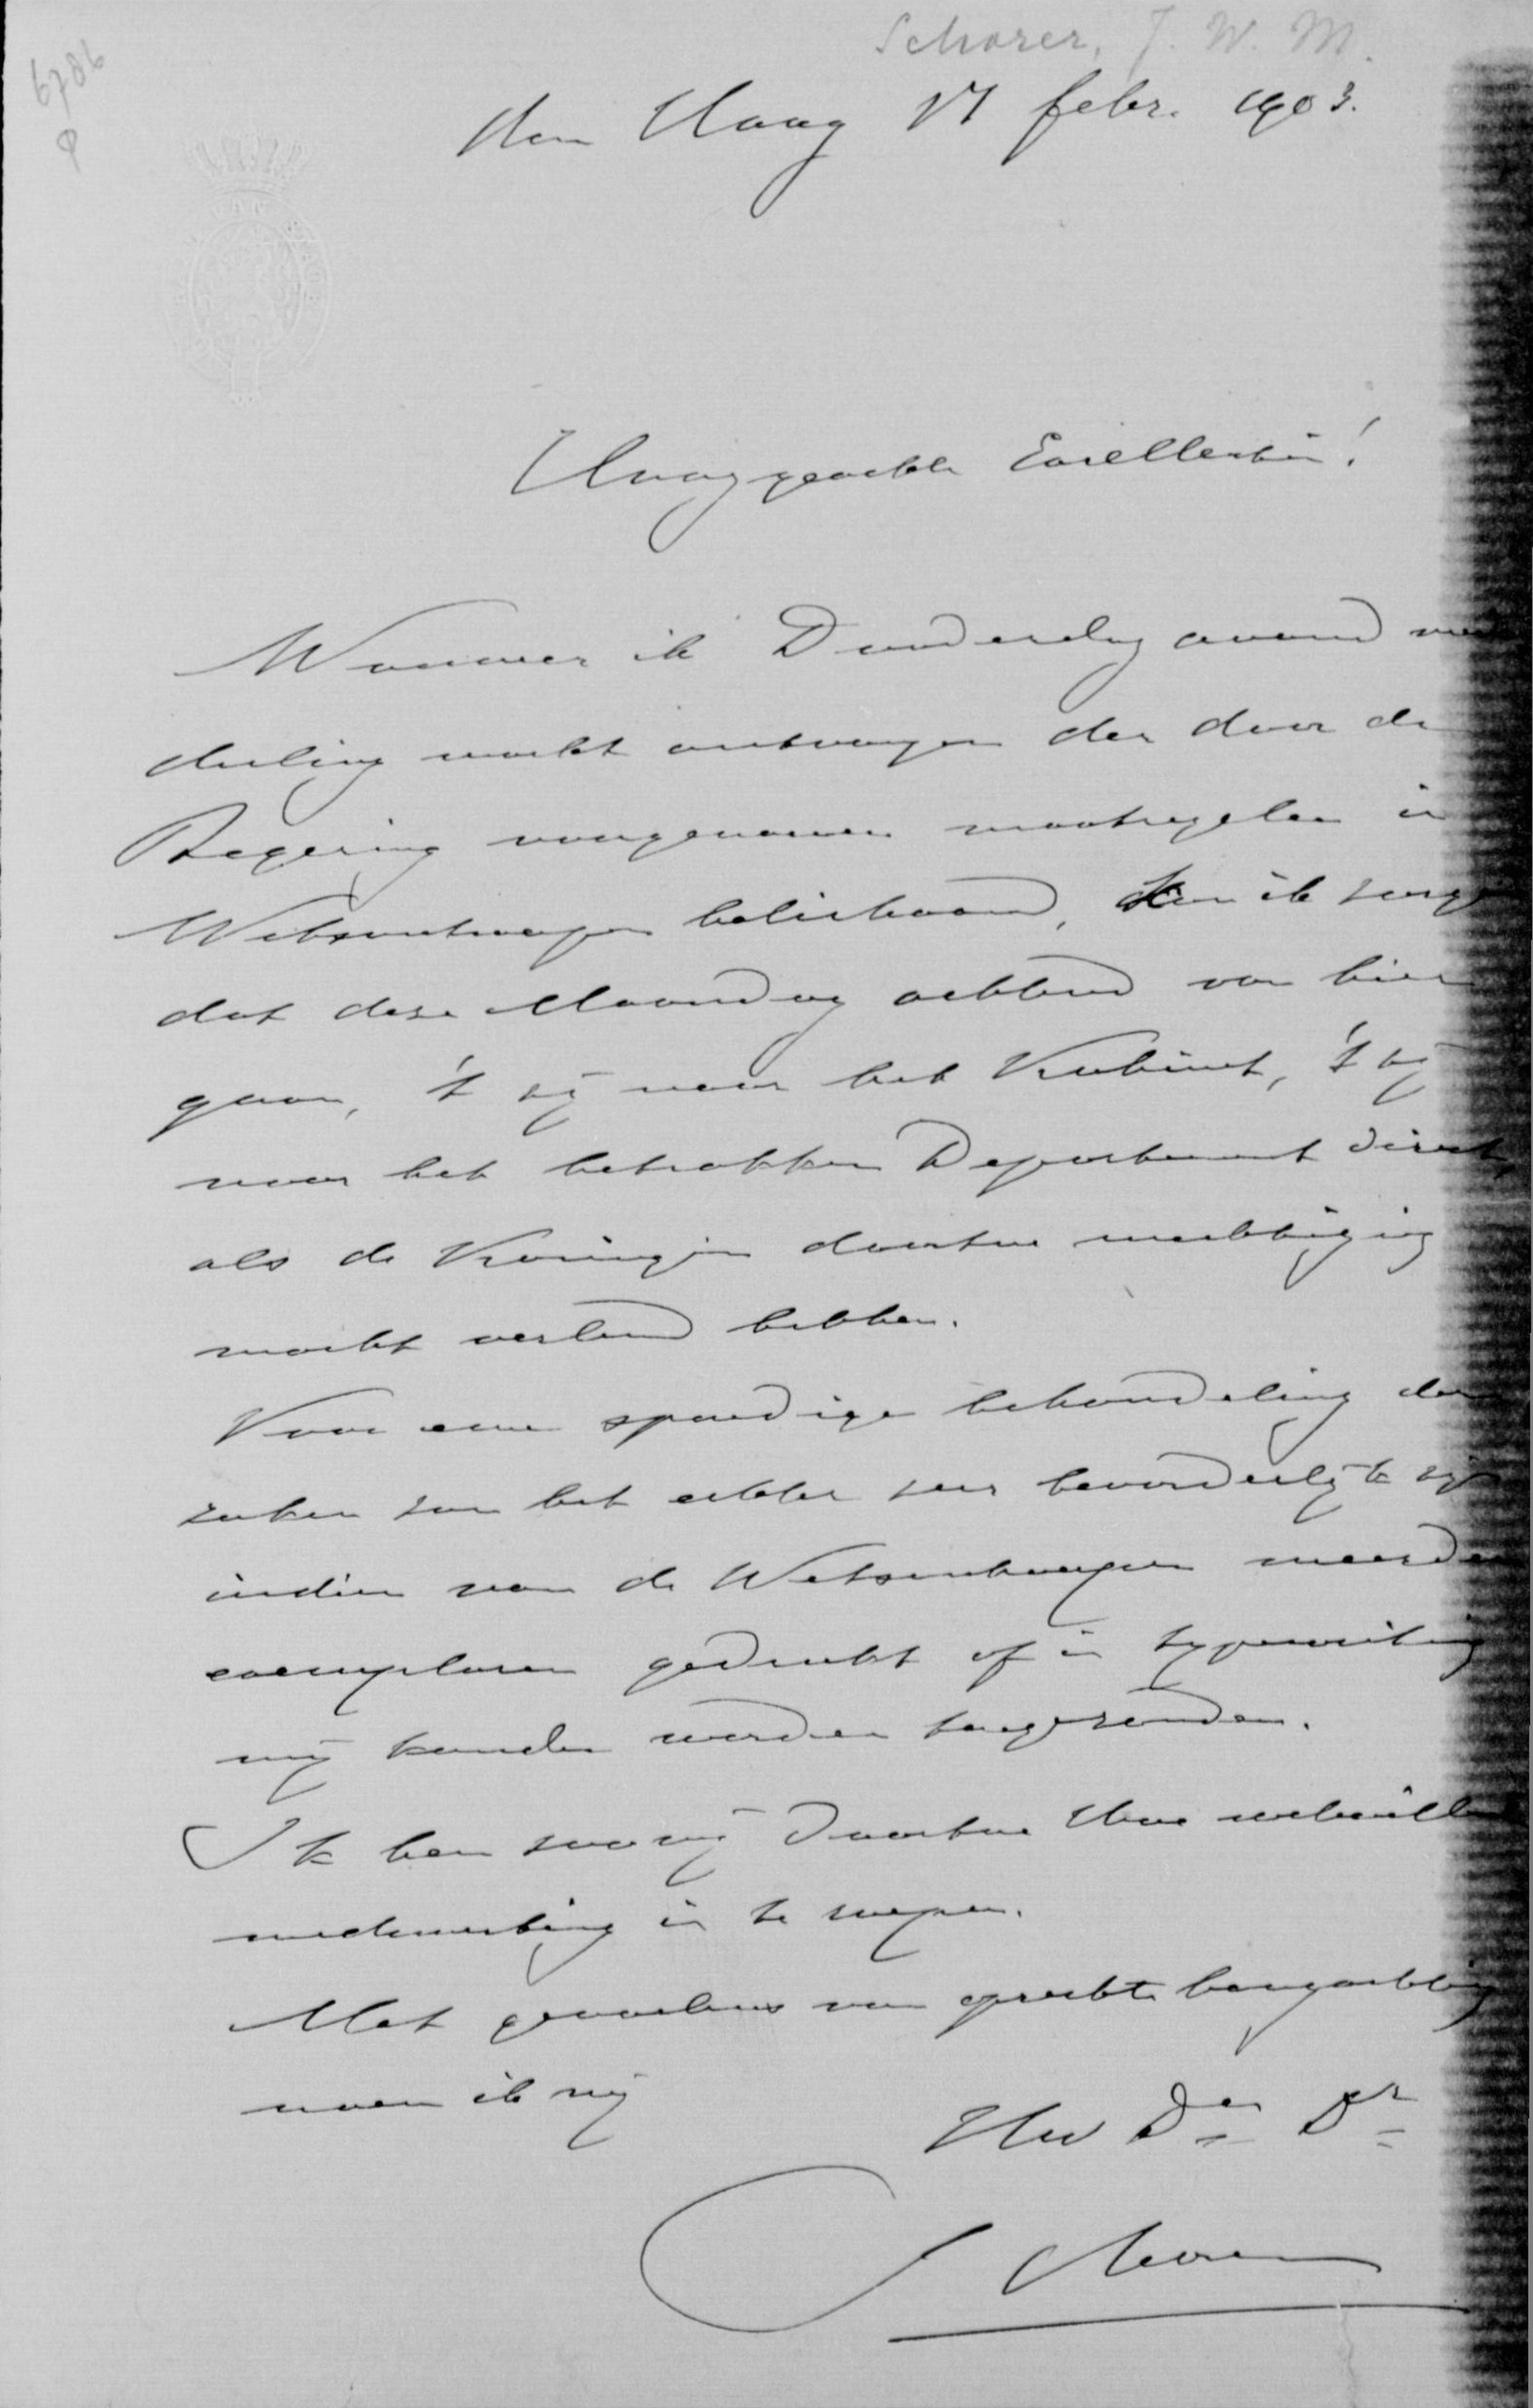 Schorer, J. W. M.
6786
den Haag 17 febr. 1903.
Hooggeachte Excellentie!
Wanneer ik Donderdag avond me
deeling mocht ontvangen der door de
Regering voorgenomen maatregelen in
Wetsontwerpen belichaamd, kan ik zorgen
dat deze Maandag ochtend van hier
gaan, 't zij naar het Kabinet, 't zij
naar het betrokken Departement direct,
als de Koningin daartoe machtiging
mocht verleend hebben.
Voor eene spoedige behandeling der
zaken zou het echter zeer bevorderlijk zijn
indien van de Wetsontwerpen meerdere
exemplaren gedrukt of in typewriting
mij konden worden toegezonden.
Ik ben zoo vrij daartoe Uwe welwillende
medewerking in te roepen.
Met gevoelens van oprechte hoogachting
noem ik mij
Uw Dw Dr
Schorer